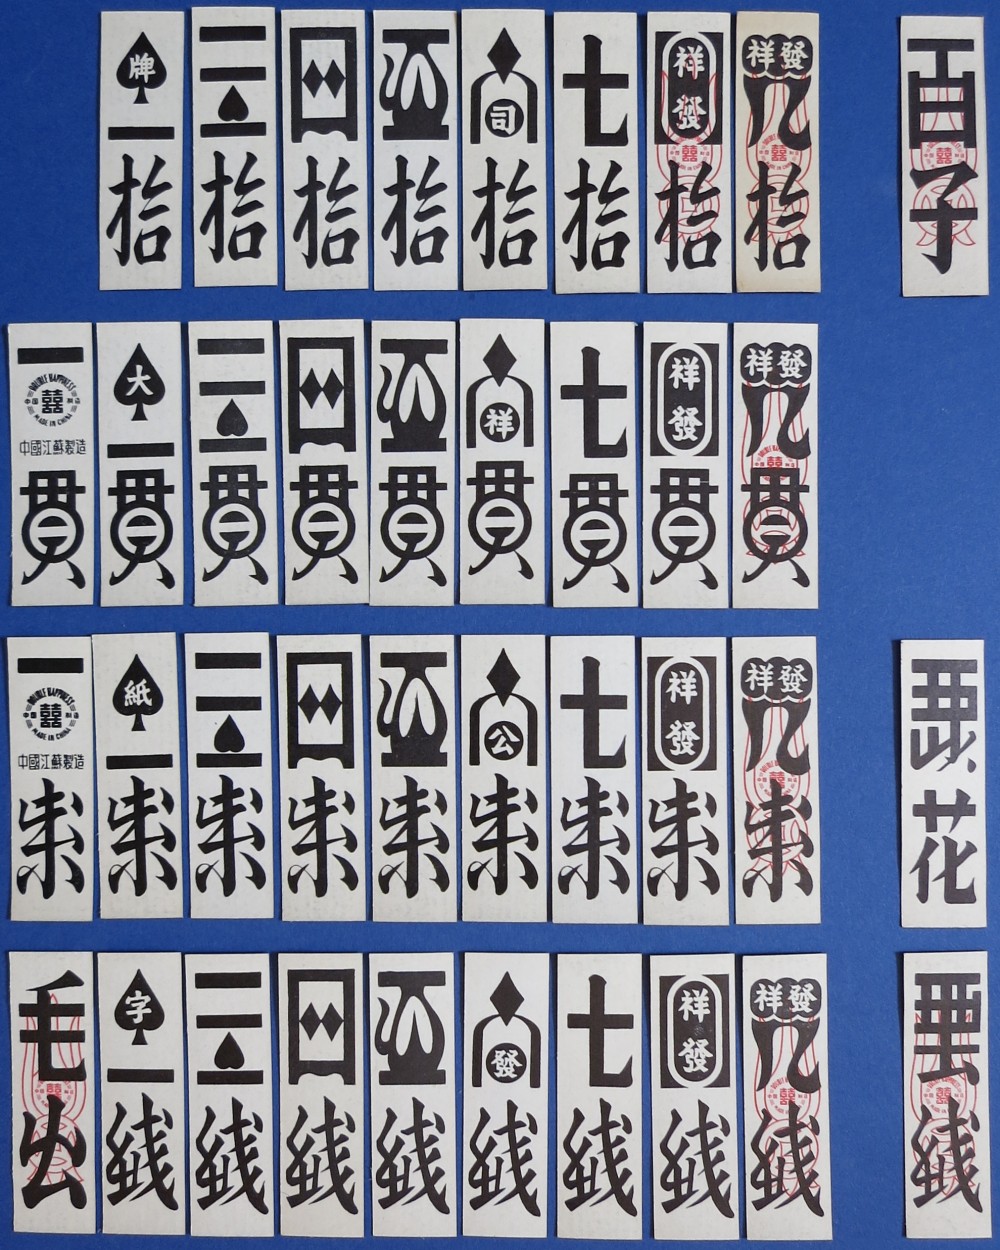 牌二拾 三拾 四拾 五拾 六司拾 七拾 祥發八拾 祥發九拾 百子
一 DOUBLE HAPPINESS 囍 中國製造 MADE IN CHINA 中國江蘇製造 貫 大二貫 三貫 四貫 五貫 六祥貫 七貫 祥發八貫 祥發九貫
一 DOUBLE HAPPINESS 囍 中國製造 MADE IN CHINA 中國江蘇製造 索 紙二索 三索 四索 五索 六公索 七索 祥發八索 祥發九索 花
毛公 字二錢 三錢 四錢 五錢 六發錢 七錢 祥發八錢 祥發九錢 錢